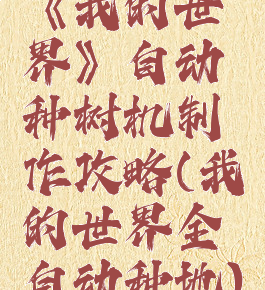 《我的世
界》自动
种树机制
作攻略(我
的世界全
自动种地)